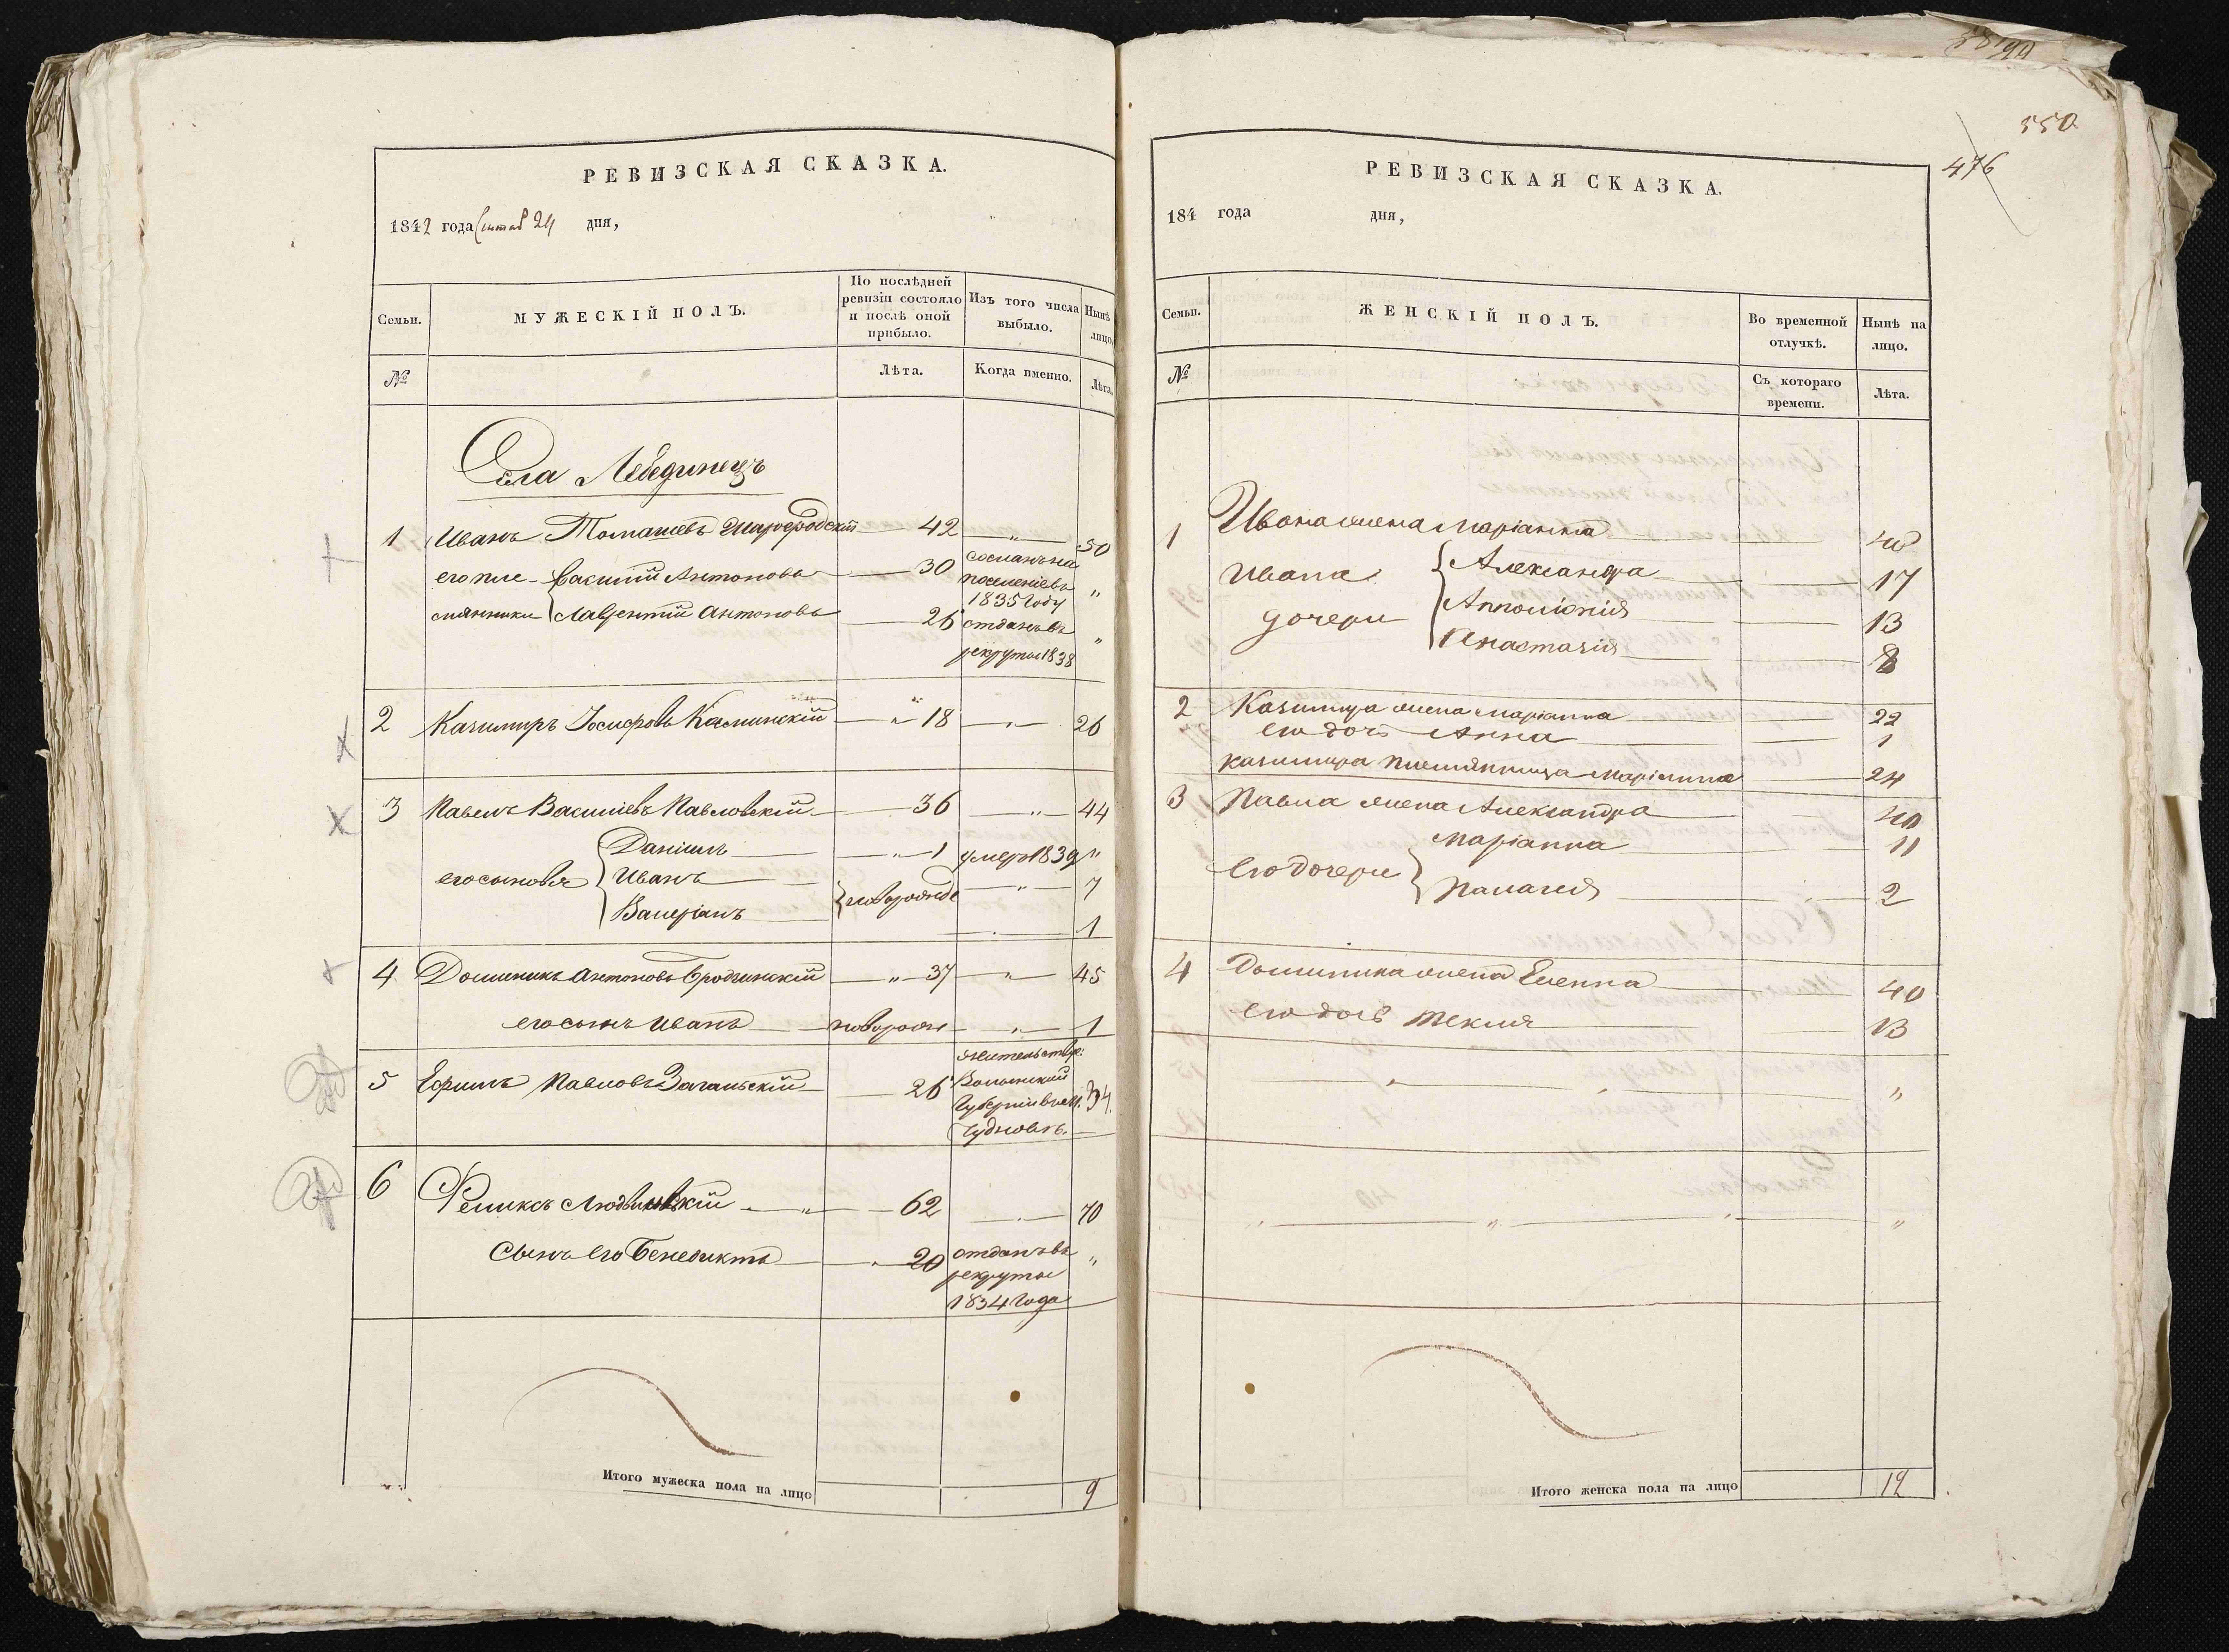 РЕВИЗСКАЯ СКАЗКА.
1842 года 24 дня,
Семьи.
МУЖЕСКІЙ ПОЛЪ.
По послѣдней
ревизіи состояло
и послѣ оной
прибыло.
Изъ того числа
выбыло.
Нынѣ
лицо.
№
Лѣта.
Когда именно.
Лѣта.
Села Лебединецъ
1 Иванъ Томашевъ Шаргородскій 42 " 50
его пле- Василий Антоновъ 30 сосланъ на
поселеніе въ "
1835 году
мянники Лаврентій Антоновъ 26 отданъ въ "
рекруты 1838
2 Казимиръ Іосифовъ Каминскій " 18 " 26
3 Павелъ Василіевъ Павловскій 36 " 44
Даніилъ " 1 умеръ 1839 "
его сыновья Иванъ новорожде " 7
Валеріанъ 1
4 Доминикъ Антоновъ Бродзинскій " 37 " 45
его сынъ Иванъ новорожде " 1
5 Ефимъ Павловъ 26 жительств:
Волынской
Губерніи въ м. 34.
Чудновѣ.
6 Феликсъ " 62 70
Сынъ его Бенедиктъ 20 отданъ въ "
рекруты
1834 года
Итого мужеска пола на лицо 9
550
476
РЕВИЗСКАЯ СКАЗКА.
184 года дня,
Семьи.
ЖЕНСКІЙ ПОЛЪ.
Во временной
отлучкѣ.
Нынѣ на
лицо.
№
Съ котораго
времени.
Лѣта.
1 Ивана жена Маріанна 40
Ивана Александра 17
дочери Апполонія 13
Анастазія 8
2 Казимира жена Маріанна 22
его дочь Анна 1
Казимира племянница Маріанна 24
3 Павла жена Александра 40
Маріанна 11
его дочери Палагея 2
4 Доминика жена Еленна 40
его дочь Текля 13
" " "
" " " "
Итого женска пола на лицо 12